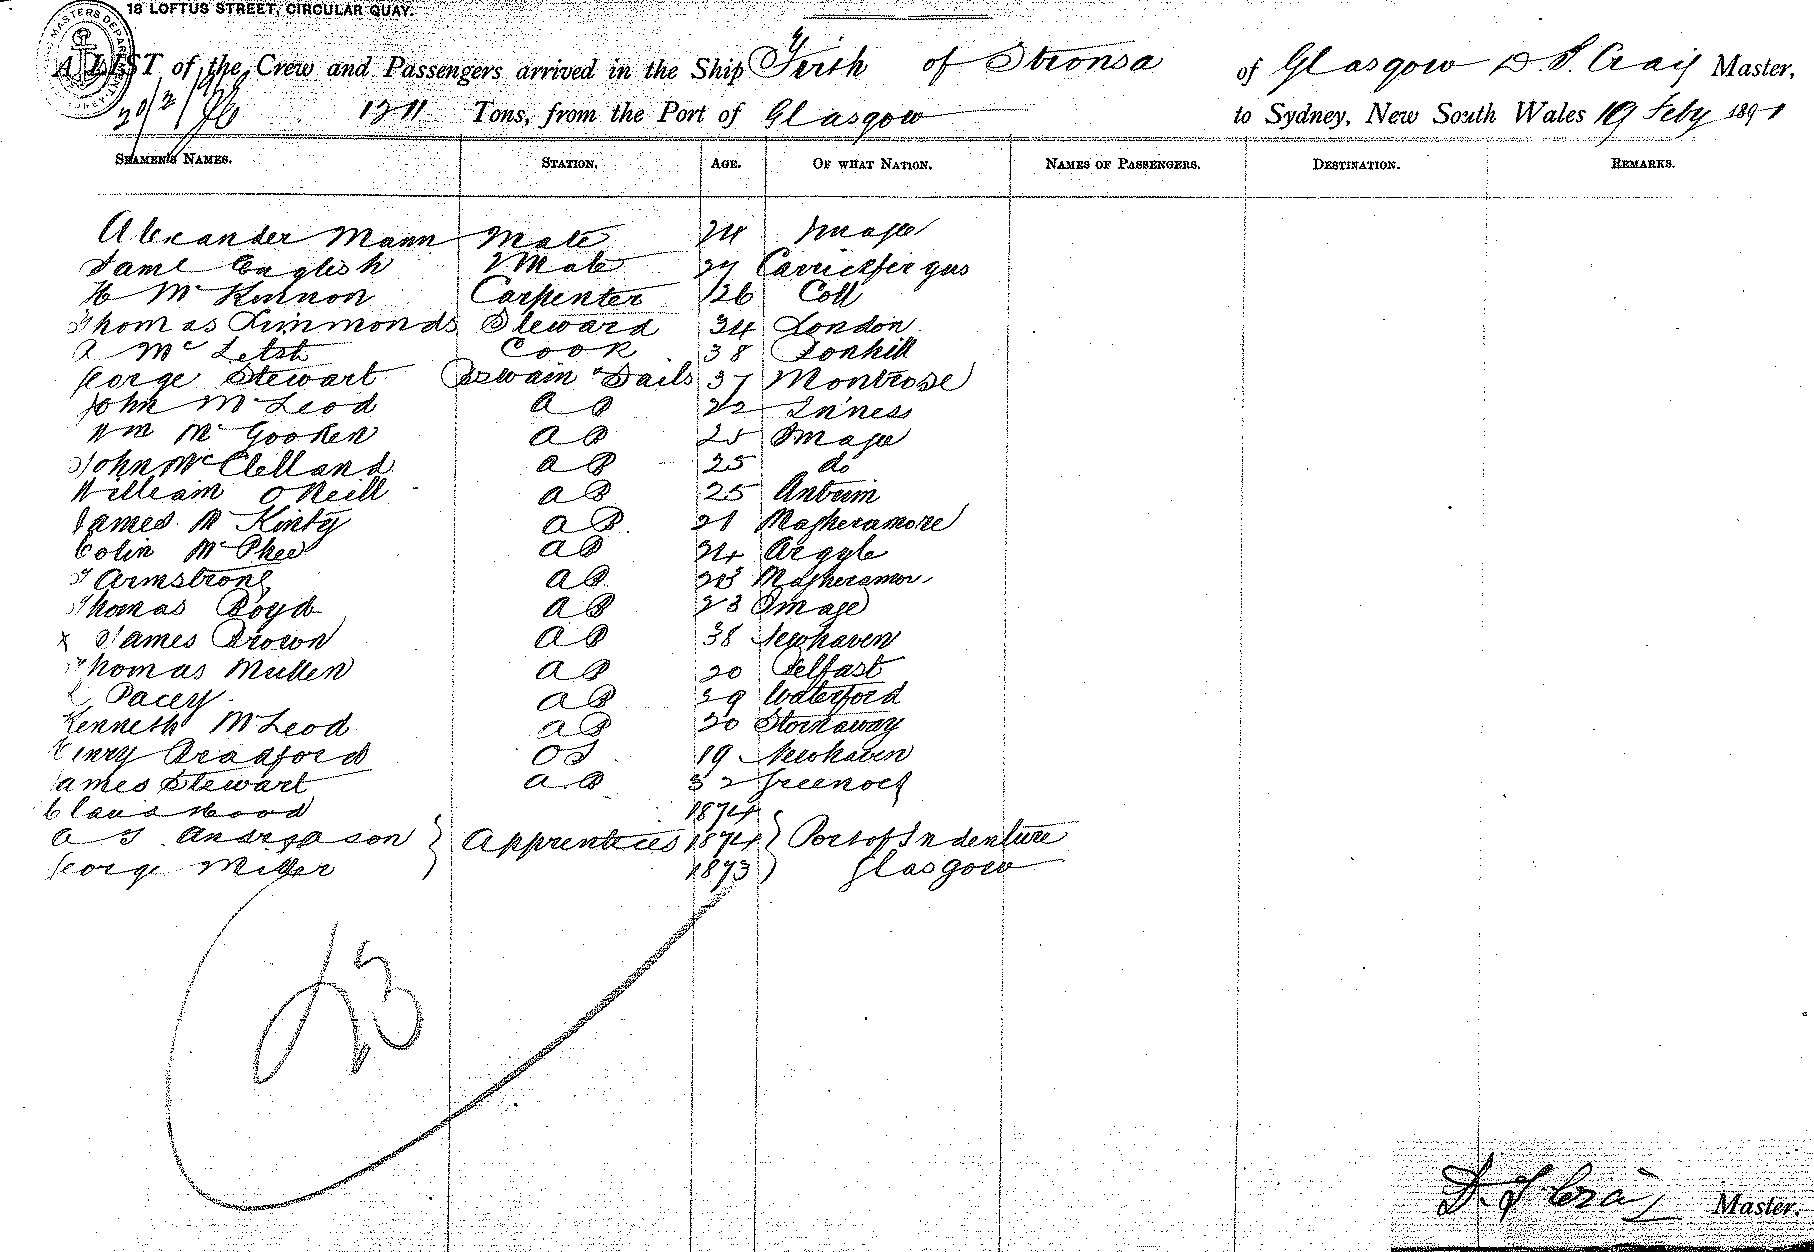 18 LOFTUS STREET, CIRCULAR QUAY.
A LIST of the Crew and Passengers arrived in the Ship Firth of Stronsa of Glasgow D. S. Craig Master,
1211 Tons, from the Port of Glasgow to Sydney, New South Wales 19 Feby 1891
SEAMEN'S NAMES. STATION. AGE. OF WHAT NATION. NAMES OF PASSENGERS. DESTINATION. REMARKS.
Alexander Mann Mate 24
Saml English 2 Mate 27 Carrickfergus
H McKinnon Carpenter 26 Coll
Thomas Simmonds Steward 34 London
Mc Cook 38
George Stewart Bswain & Sails 37 Montrose
John McLeod AB 22 In'ness
Wm McGooken AB 25
John McClelland AB 25 do
William O'Neill AB 25 Antrim
James McKinty AB 21 Magheramore
Colin McPhee AB 24 Argyle
T Armstrong AB Magheramor
Thomas Boyd AB 23
x James Brown AB 38 Newhaven
Thomas Mullen AB 20 Belfast
Pacey AB 39 Waterford
Kenneth McLeod AB 20 Stornaway
Henry Bradford OS 19 Newhaven
James Stewart AB 32 Greenock
Claus Wood 1874
A Anderson } Apprentices 1874 } Port of Indenture
George Miller 1873 Glasgow
23
D. S. Craig Master.